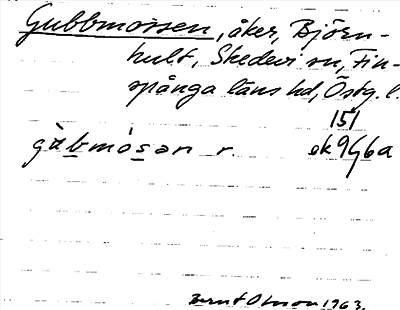 Gubbmossen, åker, Björn-
hult, Skedevi sn, Fin-
spånga läns hd, Östg. l.
151
gùbmósan r. ek 9G6a
Bernt Olsson 1963.